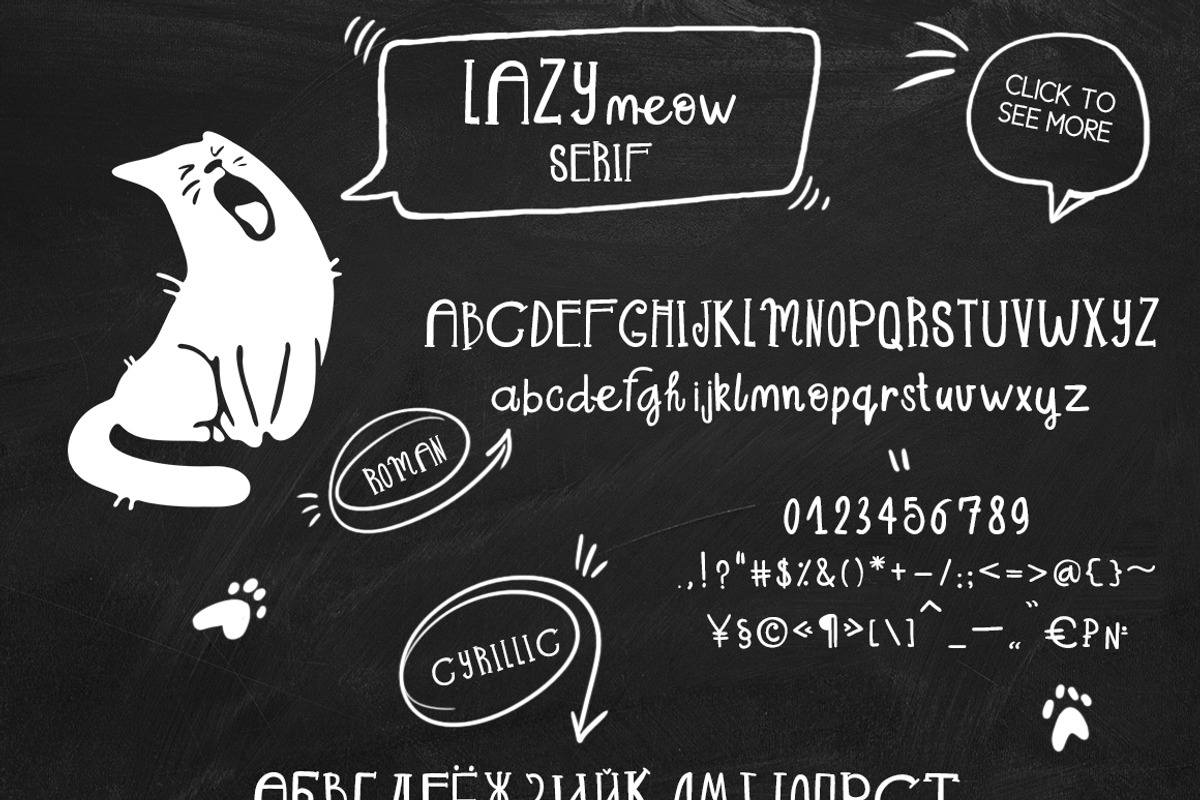 LAZY meow
SERIF
CLICK TO
SEE MORE
ABCDEFGHIJKLMNOPQRSTUVWXYZ
abcdefghijklmnopqrstuvwxyz
ROMAN
0123456789
.,!?"#$%&()*+-/:;<=>@{}~
¥§©«¶»[\]^_—“”€₽№
CYRILLIC
АБВГДЕЁЖЗИЙКЛМГНОПРСТ